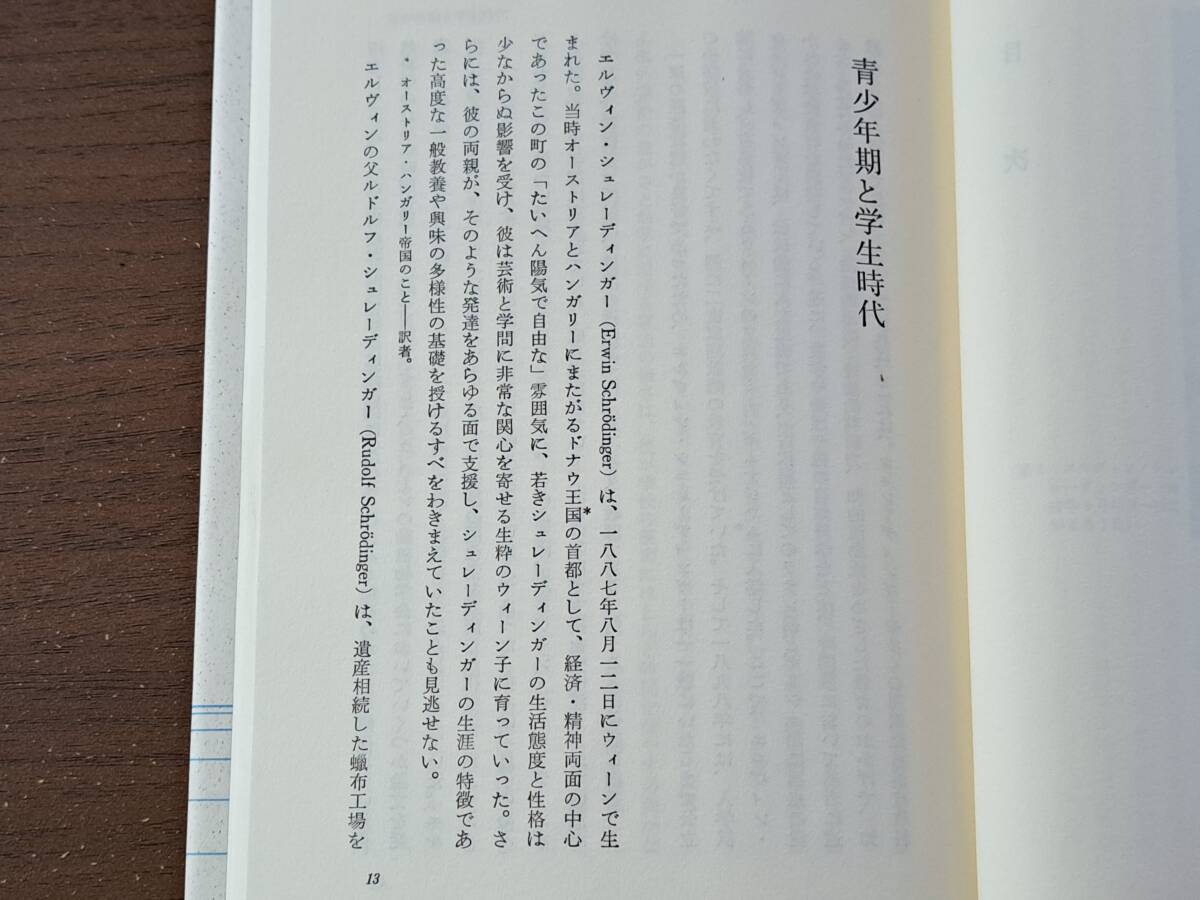 青少年期と学生時代
エルヴィン・シュレーディンガー(Erwin Schrödinger)は、一八八七年八月一二日にウィーンで生
まれた。当時オーストリアとハンガリーにまたがるドナウ王国*の首都として、経済・精神両面の中心
であったこの町の「たいへん陽気で自由な」雰囲気に、若きシュレーディンガーの生活態度と性格は
少なからぬ影響を受け、彼は芸術と学問に非常な関心を寄せる生粋のウィーン子に育っていった。さ
らには、彼の両親が、そのような発達をあらゆる面で支援し、シュレーディンガーの生涯の特徴であ
った高度な一般教養や興味の多様性の基礎を授けるすべをわきまえていたことも見逃せない。
* オーストリア・ハンガリー帝国のこと——訳者。
エルヴィンの父ルドルフ・シュレーディンガー(Rudolf Schrödinger)は、遺産相続した蠟布工場を
13
目次